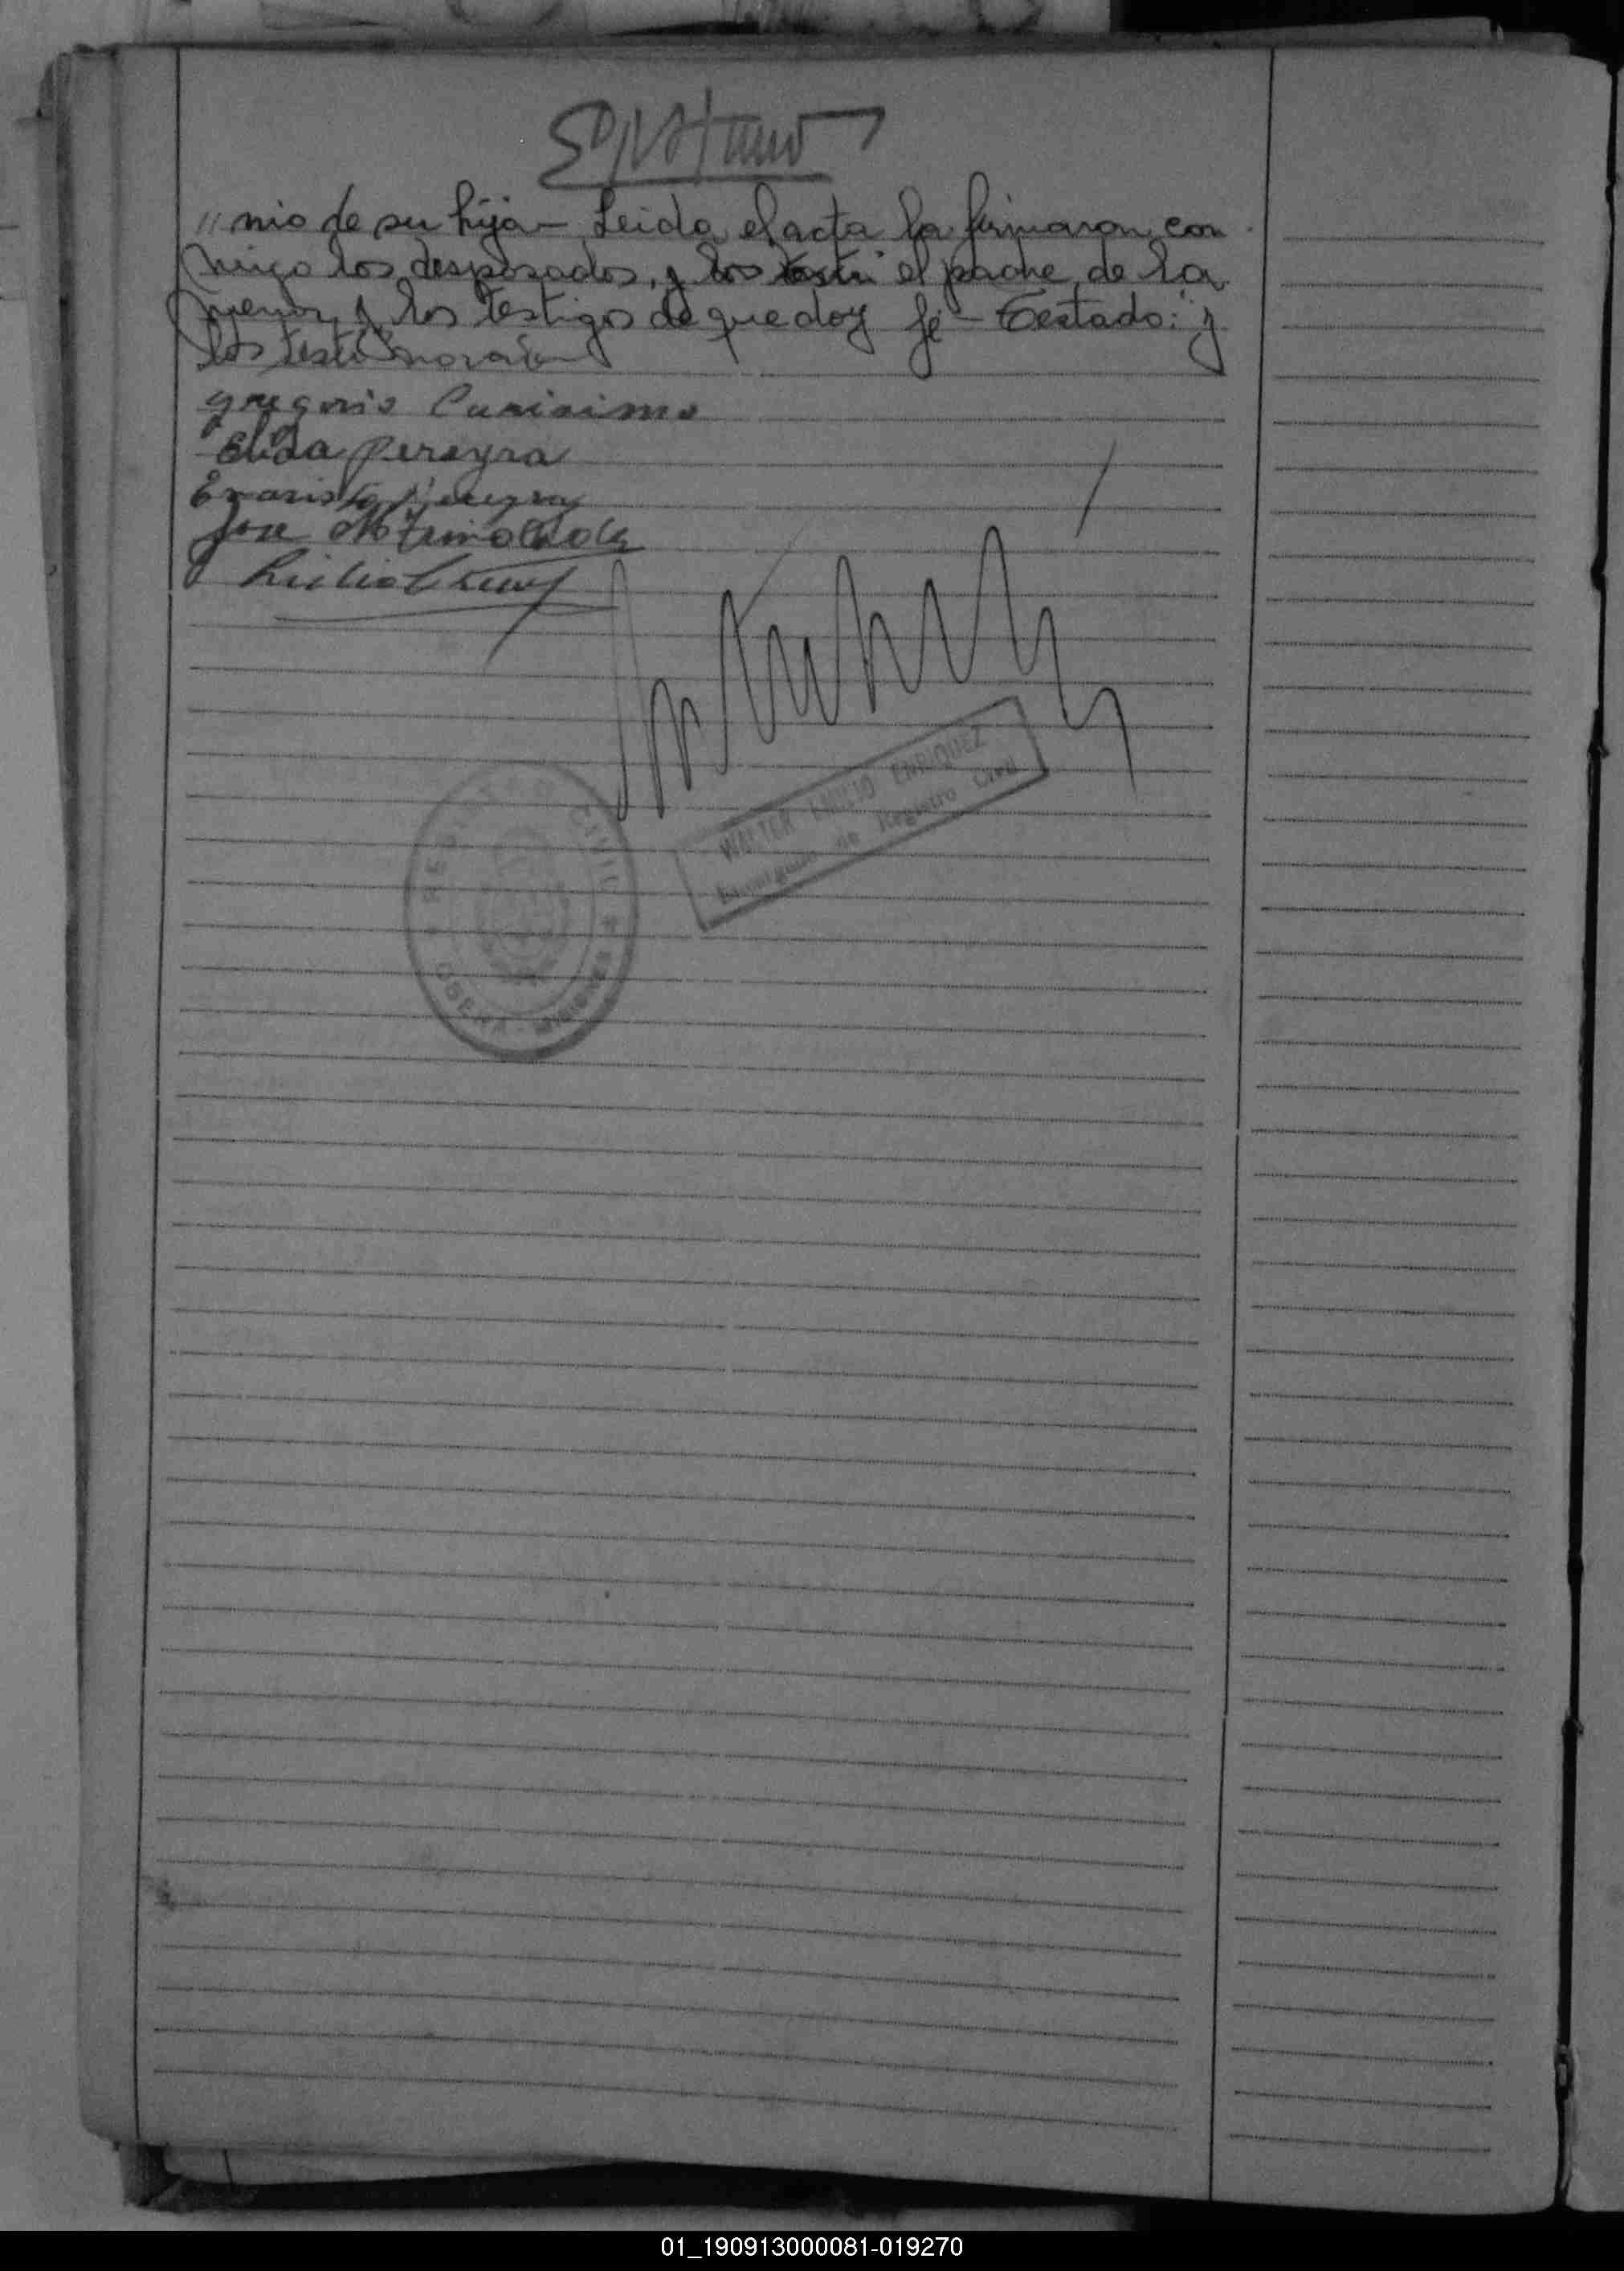 " nio de su hija - Leida el acta la firmaron con
migo los desposados, y los testi el padre de la
menor y los testigos de que doy fé - Testado: "y
los testi" no vale
gregorio
Elida Pereyra
Evaristo Pereyra
Jose
WALTER EMILIO ENRIQUEZ
Encargado de Registro Civil
REGISTRO CIVIL
OBERA MISIONES
01_190913000081-019270